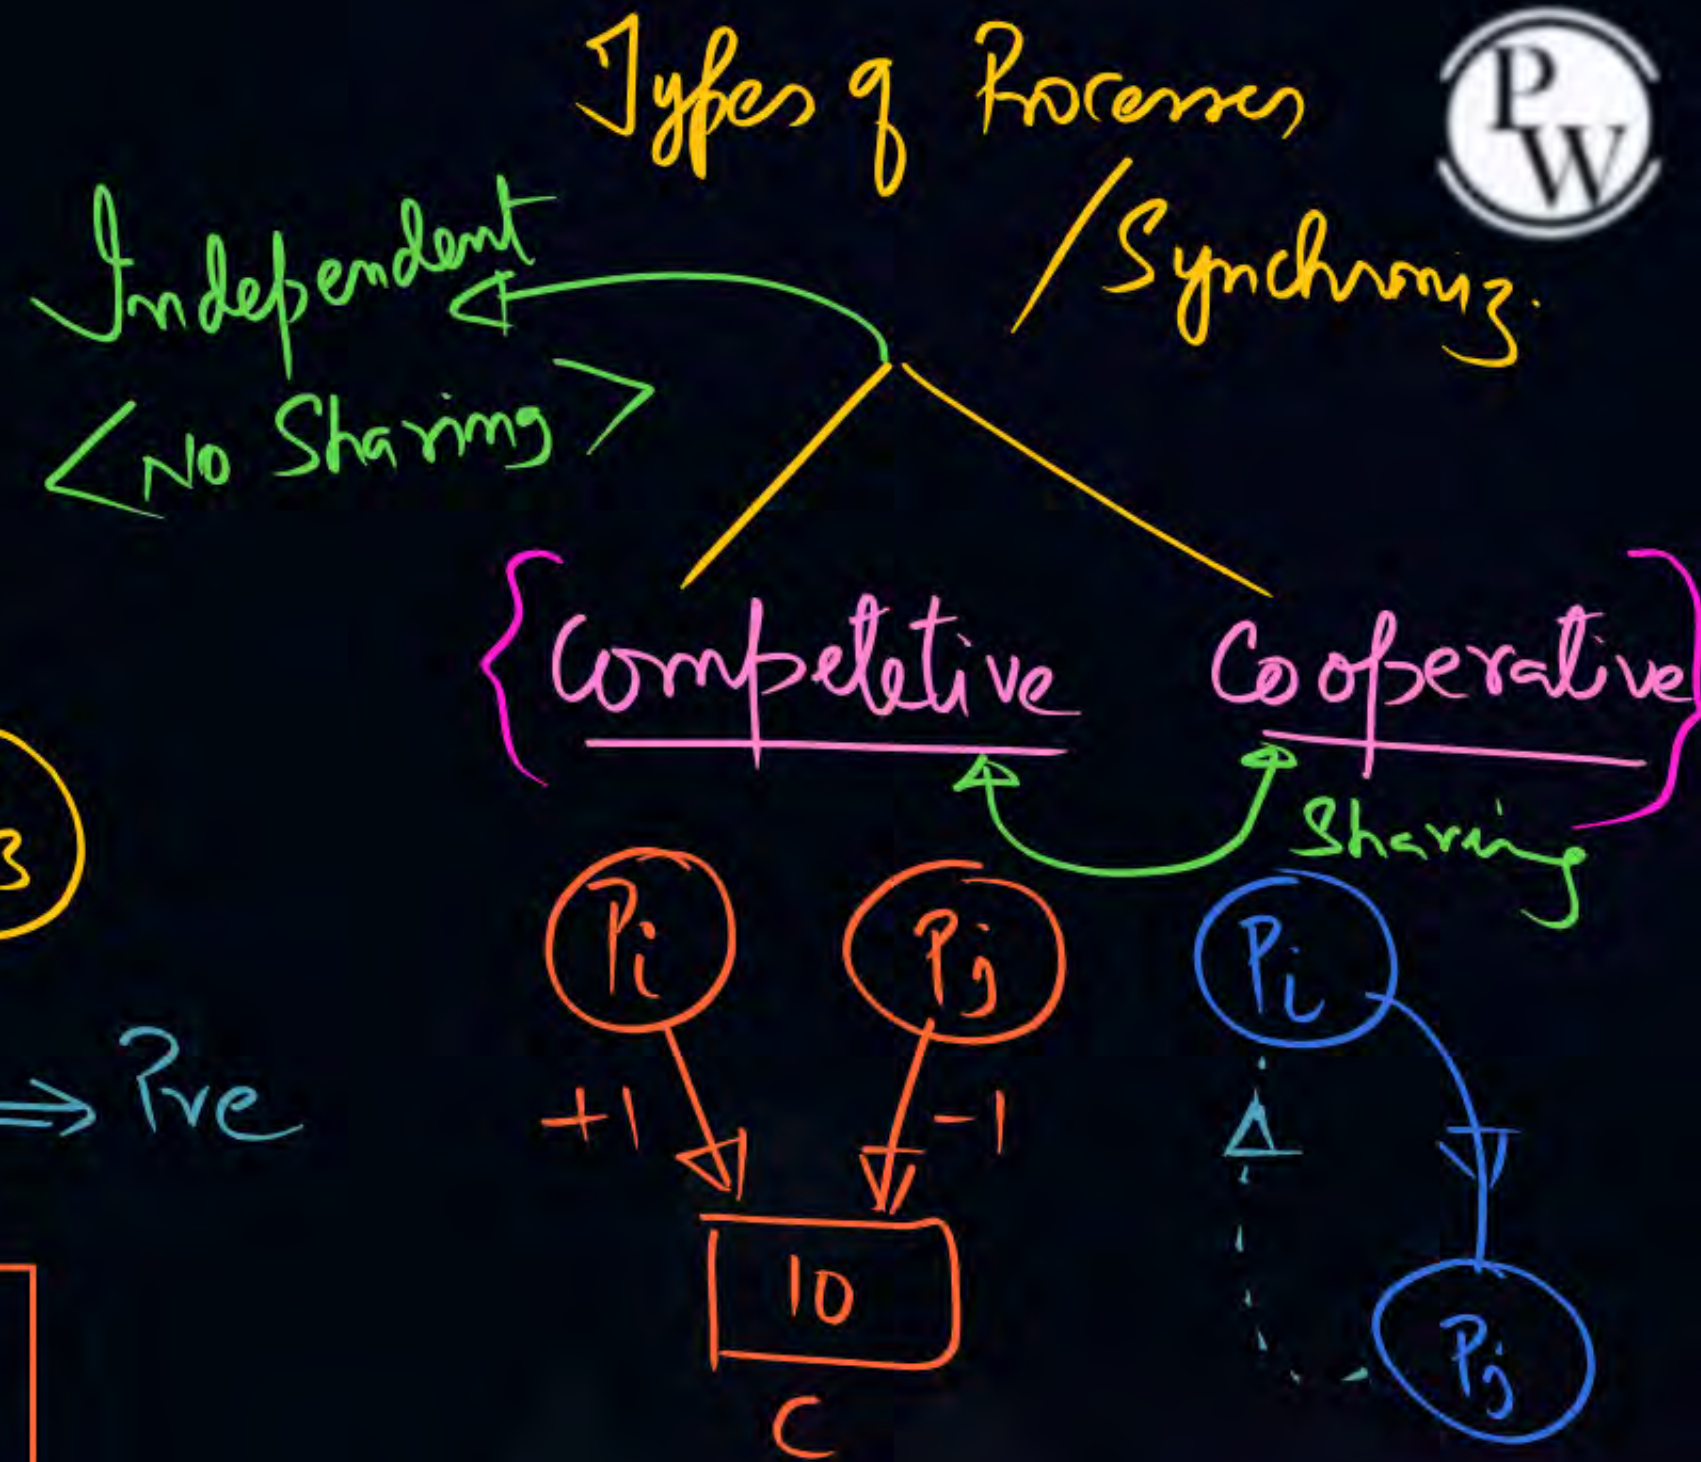 Types of Processes
/Synchroniz.
PW
Independent
<No Sharing>
{Competetive Cooperative}
Sharing
3
Pi Pj Pi
⇒ Pre
+1 -1
10
Pj
C